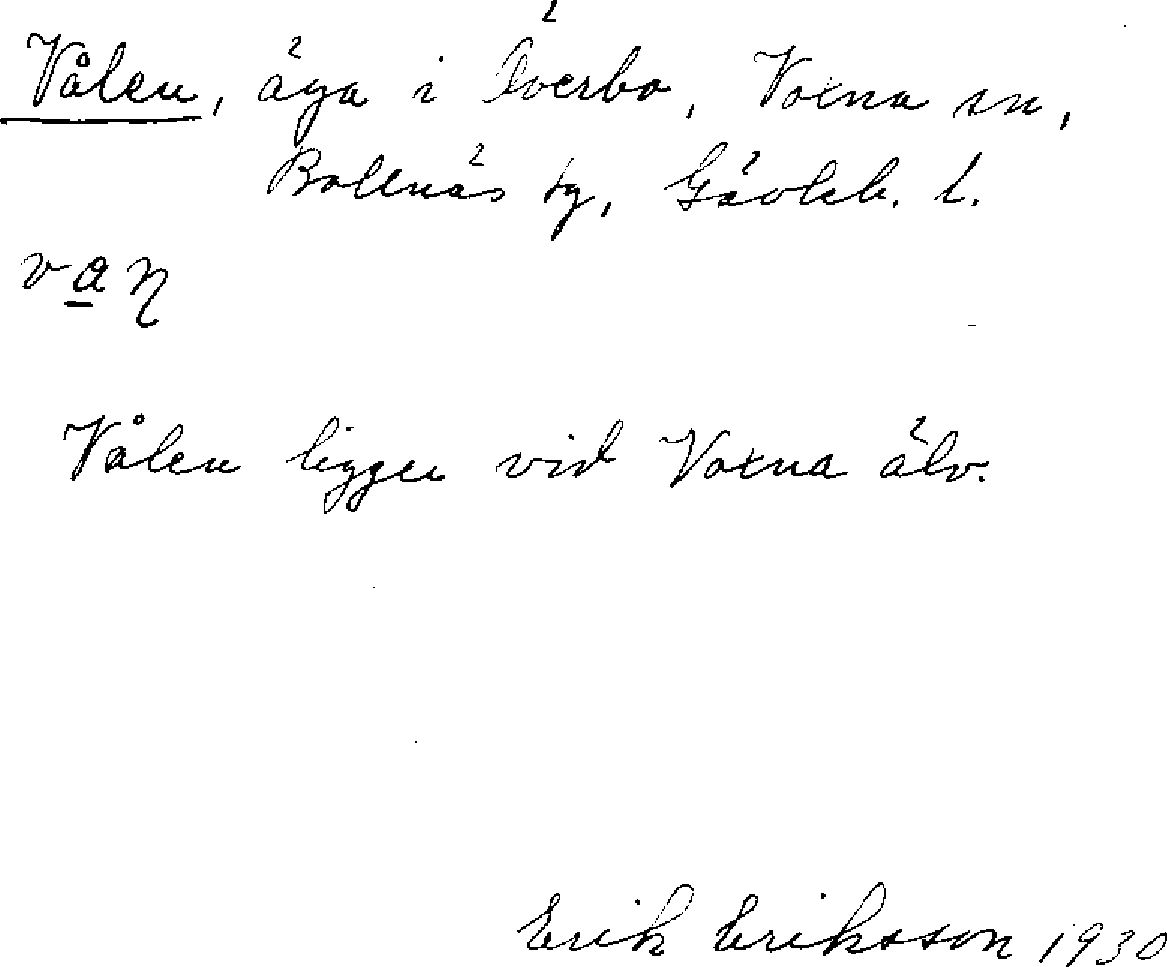 Vålen, äga i Överbo, Voxna sn,
Bollnäs tg, Gävleb. l.
va̲ŋ
Vålen ligger vid Voxna älv.
Erik Eriksson 1930